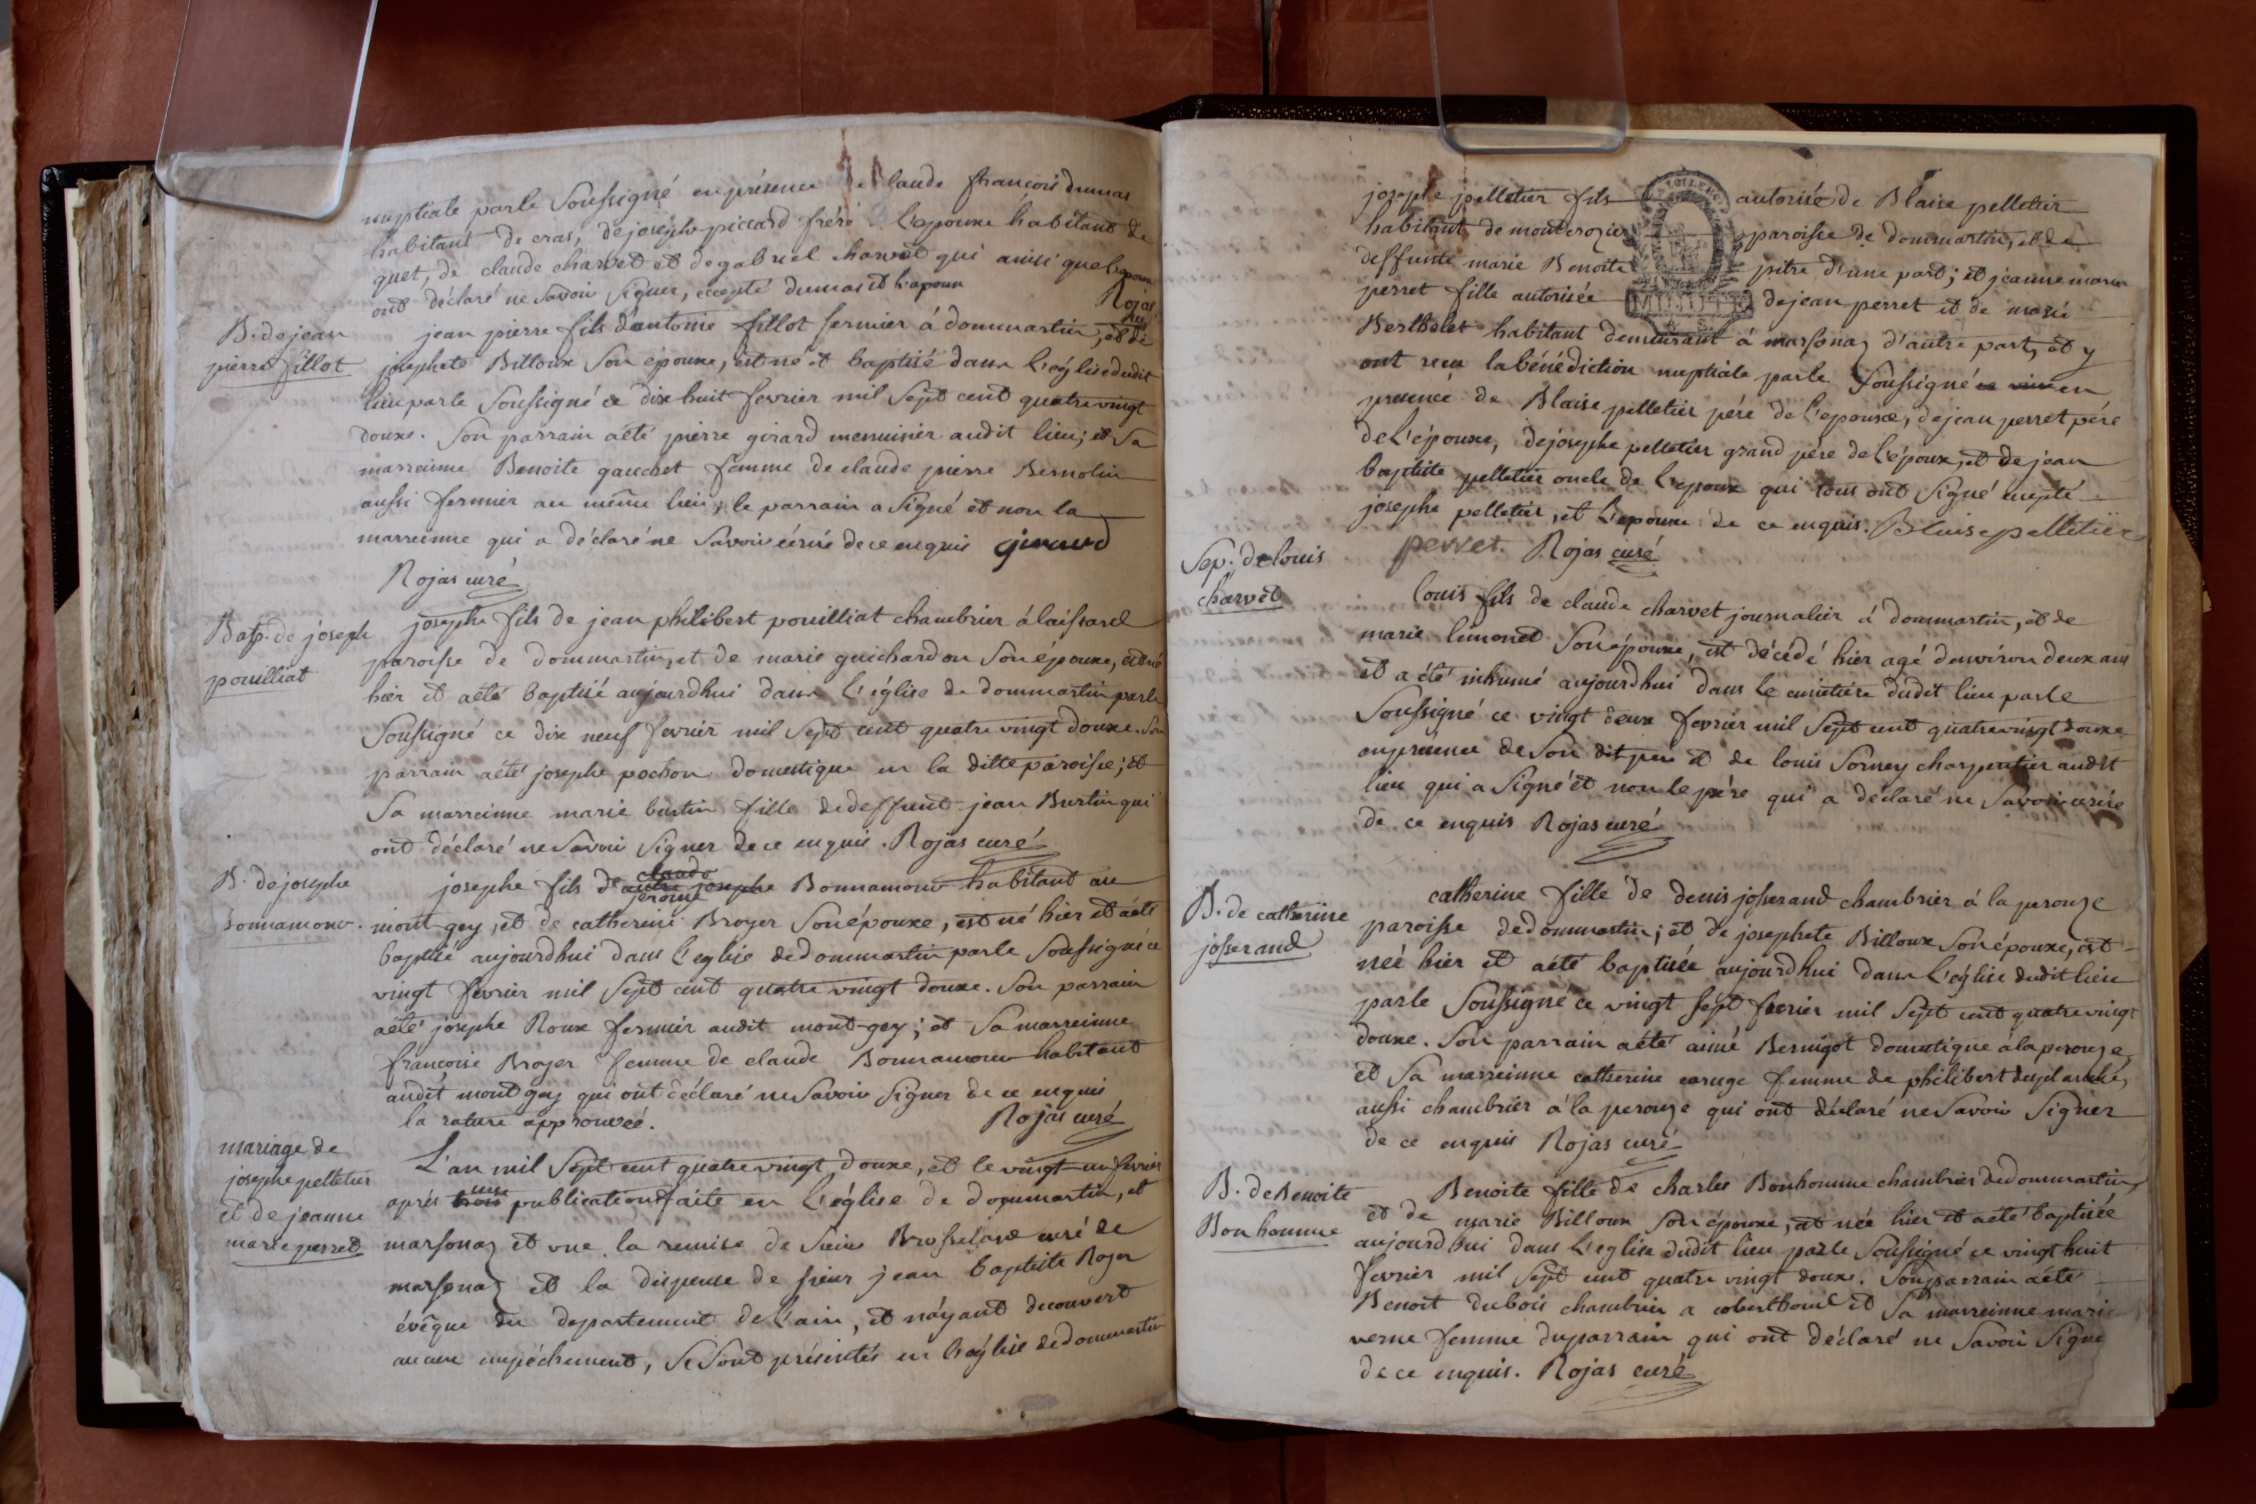 nuptiale parle Soussigné en présence de Claude françois dumas
habitant de cras, de joseph piccard fréré L'epouxe habitant de
quet, de claude charvet et de gabriel charvet qui ainsi que lepoux
ont déclaré ne Savoir Signer, excepté dumas et l'epoux
Rojas
curé
B. de jean
pierre fillot
jean pierre fils d'antoine fillot fermier á dommartin, et de
josephete Billoux Son épouxe, est né et baptisé dans L'églisedudit
lieu parle Soussigné ce dix huit fevrier mil Sept cent quatrevingt
douxe. Son parrain aété pierre girard menuisier audit lieu; et Sa
marreinne Benoite gauchet femme de claude pierre Bernolin
aussi fermier au même lieu, le parrain a Signé et non la
marreinne qui a déclaré ne Savoir écrire de ce enquis giraud
Rojas curé
Bapt. de joseph
pouilliat
josephe fils de jean philibert pouilliat chambrier á laissard
paroisse de dommartin, et de marie guichardon Son épouxe, est né
hier et aété baptisé aujourdhui dans L'église de dommartin parle
Soussigné ce dix neuf fevrier mil Sept cent quatre vingt douxe. Son
parrain aété josephe pochon domestique en la ditte paroisse; et
Sa marreinne marie burtin fille dedeffunt jean Burtin qui
ont déclaré ne Savoir Signer de ce enquis. Rojas curé
B. de josephe
Bonnamour.
claude
josephe fils d'autre josephe Bonnamour habitant au
jerome
mont-gey, et de catherine Broyer Son épouxe, est né hier et aété
baptisé aujourdhui dans L'eglise dedommartin parle Soussigné ce
vingt fevrier mil Sept cent quatre vingt douxe. Son parrain
aété josephe Roux fermier audit mont-gey; et Sa marreinne
francoise Broyer femme de claude Bonnamour habitant
audit montgey qui ont déclaré ne Savoir Signer de ce enquis
la rature approuvée. Rojas curé
mariage de
josephe pelletier
et de jeanne
marie perret
L'an mil Sept cent quatrevingt douxe, et le vingt-un fevrier
une
aprés trois publication faite en L'église de dommartin, et
marsonaz et vue la remise de Sieur Brosselard curé de
marsonaz et la dispense de sieur jean baptiste Royer
évêque du departement de L'ain, et n'ayant decouvert
aucun empéchement, Se Sont présentés en L'église dedommartin
josephe pelletier fils autorisé de Blaise pelletier
habitant de montcrozier paroisse de dommartin, et de
deffunte marie Benoite pitre d'une part; et jeanne marie
perret fille autorisée dejean perret et de marie
Berthelet habitant demeurant á marsonaz d'autre part, et y
ont recu labénédiction nuptiale parle Soussigné en
presence de Blaise pelletier pére de L'epouxe, dejean perret pére
deL'épouxe, dejosephe pelletier grand pére de L'époux, et de jean
baptiste pelletier oncle de L'epoux qui tous ont Signé excepté
josephe pelletier, et L'epouxe de ce enquis. Blaise pelletier
perret. Rojas curé
Sep. de louis
charvet
louis fils de claude charvet journalier á dommartin, et de
marie limonet Son épouxe, est décédé hier agé denviron deux ans
et a été inhumé aujourdhui dans le cimetiére dudit lieu parle
Soussigné ce vingt deux fevrier mil Sept cent quatrevingt douxe
en presence de Son dit pere et de louis Sorney charpentier audit
lieu qui a Signé et non le pére qui a déclaré ne Savoir ecrire
de ce enquis Rojas curé
B. de catherine
josserand
catherine fille de denis josserand chambrier á la perouze
paroisse dedommartin; et de josephete Billoux Son épouxe, est
néé hier et aété baptisée aujourdhui dans L'église dudit lieu
parle Soussigné ce vingt Sept fevrier mil Sept cent quatre vingt
douxe. Son parrain aété aimé Bernigot domestique álaperouze,
et Sa marreinne catherine caruge femme de philibert desplanche,
aussi chambrier á la perouze qui ont déclaré ne Savoir Signer
de ce enquis Rojas curé
B. deBenoite
Bonhomme
Benoite fille de charles Bonhomme chambrier dedommartin,
et de marie Billoux Son épouxe, est née hier et aété baptisée
aujourdhui dans L'eglise dudit lieu parle Soussigné ce vingt huit
fevrier mil Sept cent quatre vingt douxe. Son parrain aété
Benoit dubois chambrier a coberthoud et Sa marreinne marie
verne femme duparrain qui ont déclaré ne Savoir Signe
de ce enquis. Rojas curé